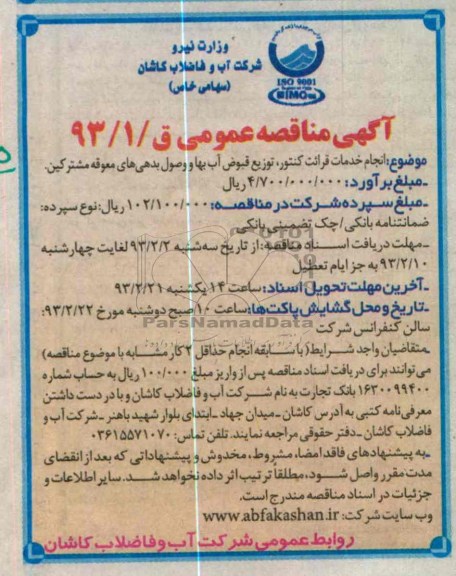 وزارت نیرو
شرکت آب و فاضلاب کاشان
(سهامی خاص)
ISO 9001
IMQ
آگهی مناقصه عمومی ق/۹۳/۱
موضوع: انجام خدمات قرائت کنتور، توزیع قبوض آب بها و وصول بدهی های معوقه مشترکین.
ـ مبلغ برآورد: ۴/۷۰۰/۰۰۰/۰۰۰ ریال
ـ مبلغ سپرده شرکت در مناقصه: ۱۰۲/۱۰۰/۰۰۰ ریال: نوع سپرده:
ضمانتنامه بانکی/ چک تضمینی بانکی
ـ مهلت دریافت اسناد مناقصه: از تاریخ سه شنبه ۹۳/۲/۲ لغایت چهارشنبه
۹۳/۲/۱۰ به جز ایام تعطیل
ـ آخرین مهلت تحویل اسناد: ساعت ۱۴ یکشنبه ۹۳/۲/۲۱
ـ تاریخ و محل گشایش پاکت ها: ساعت ۱۰ صبح دوشنبه مورخ ۹۳/۲/۲۲:
سالن کنفرانس شرکت
ParsNamadData
ـ متقاضیان واجد شرایط (با سابقه انجام حداقل ۳ کار مشابه با موضوع مناقصه)
می توانند برای دریافت اسناد مناقصه پس از واریز مبلغ ۱۰۰/۰۰۰ ریال به حساب شماره
۱۶۳۰۰۹۹۴۰۰ بانک تجارت به نام شرکت آب و فاضلاب کاشان و با در دست داشتن
معرفی نامه کتبی به آدرس کاشان ـ میدان جهاد ـ ابتدای بلوار شهید باهنر ـ شرکت آب و
فاضلاب کاشان ـ دفتر حقوقی مراجعه نمایند. تلفن تماس: ۰۳۶۱۵۵۷۱۰۷۰
ـ به پیشنهادهای فاقد امضاء، مشروط، مخدوش و پیشنهاداتی که بعد از انقضای
مدت مقرر واصل شود، مطلقاً ترتیب اثر داده نخواهد شد. سایر اطلاعات و
جزئیات در اسناد مناقصه مندرج است.
وب سایت شرکت: www.abfakashan.ir
روابط عمومی شرکت آب و فاضلاب کاشان